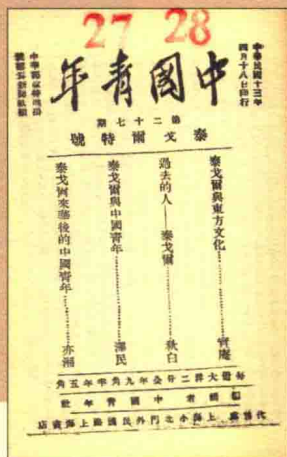 27 28
中華民國十三年
四月十八日印行
中國青年
中華郵政特准掛
號認爲新聞紙類
第二十七期
泰戈爾特號
泰戈爾與東方文化……實庵
過去的人——泰戈爾……秋白
泰戈爾與中國青年……澤民
泰戈爾來華後的中國青年……亦湘
每週大洋二分全年九角半年五角
編輯者 中國青年社
上海小北門外民國路上海書店